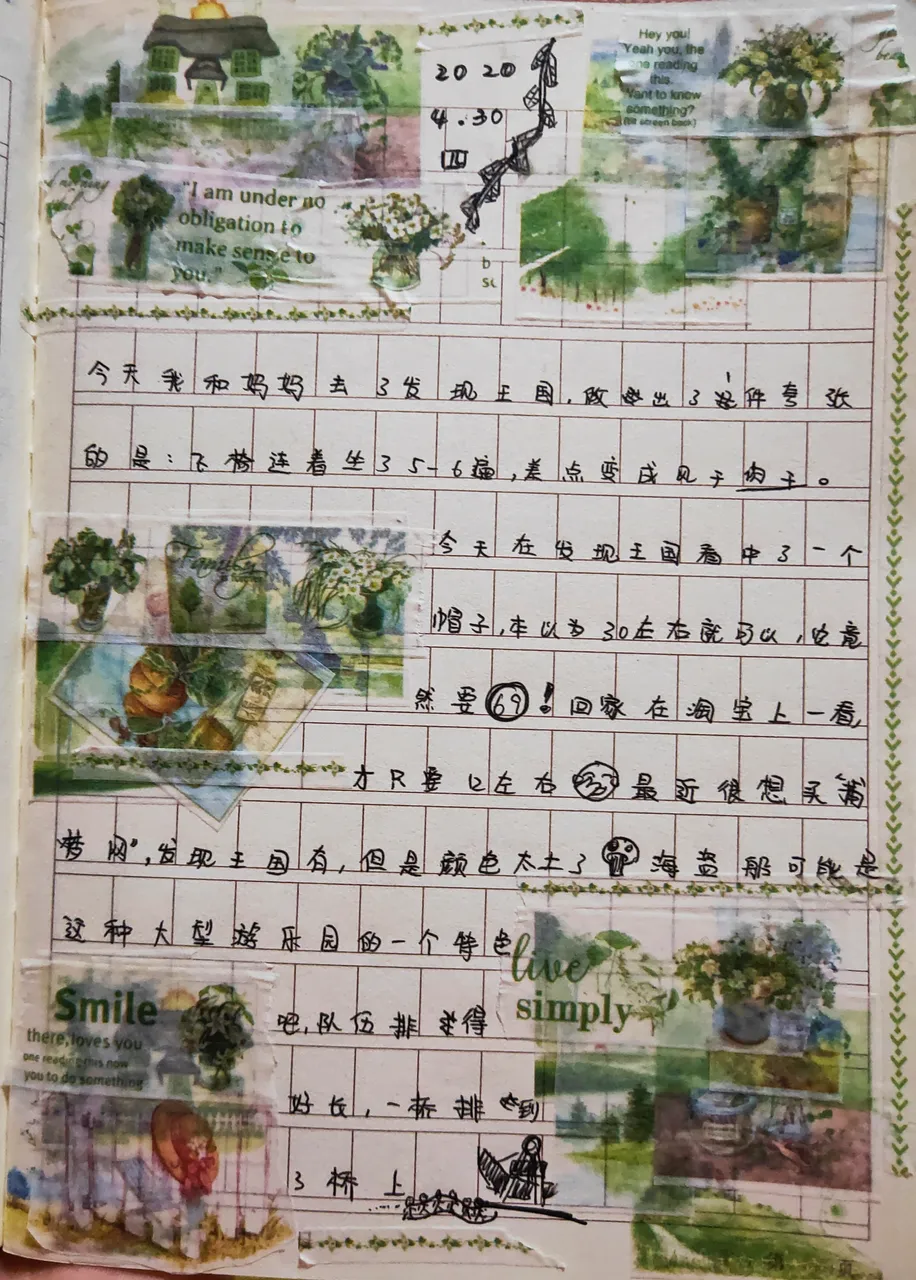 2020
4.30
四
Hey you!
Yeah you, the
one reading
this.
Want to know
something?
(tilt screen back)
"I am under no
obligation to
make sense to
you."
今天我和妈妈去了发现王国,做出了件夸张
的是:飞椅连着坐了5-6遍,差点变成风干肉干。
今天在发现王国看中了一个
帽子,本以为30左右就可以,竟
然要69!回家在淘宝上一看
才只要12左右最近很想买"捕
梦网",发现王国有,但是颜色太土了海盗船可能是
这种大型游乐园的一个特色
吧,队伍排得
好长,一桥排到
了桥上
Family
live
simply
Smile
there, loves you
one reading this now
you to do something
第 页